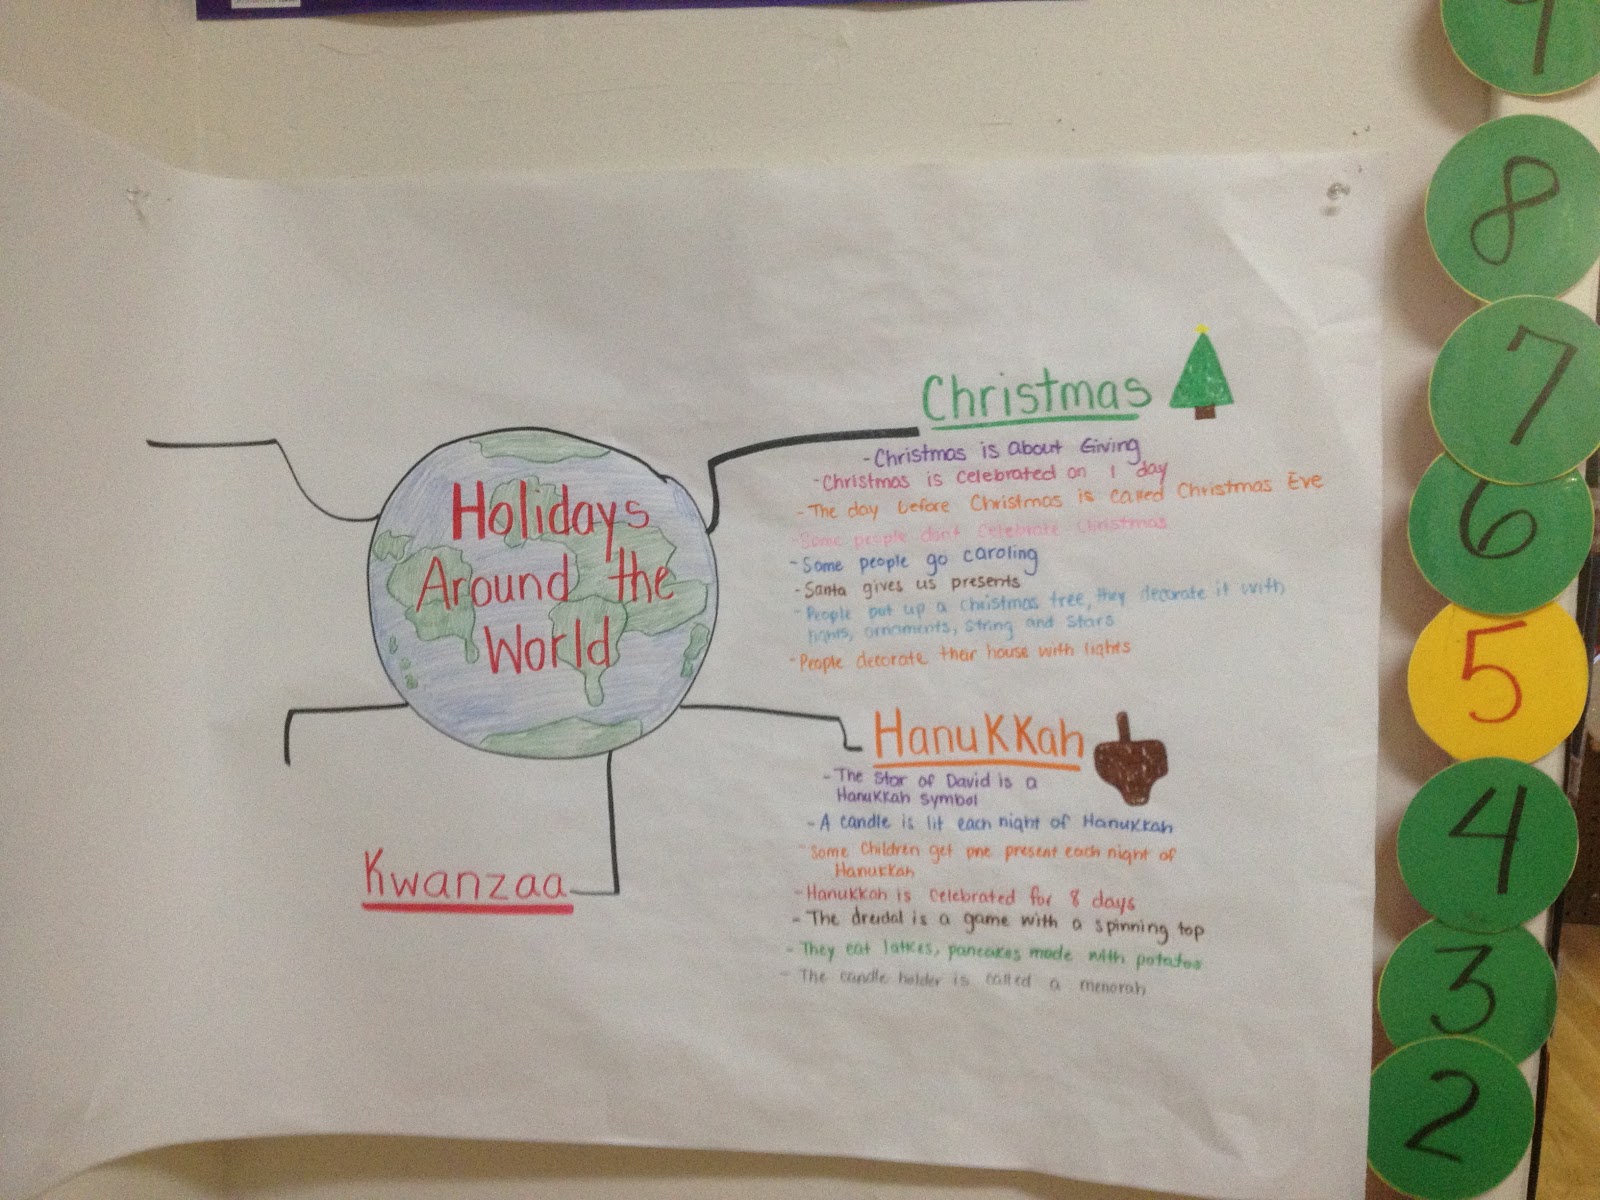 Holidays
Around the
World
Christmas
-Christmas is about Giving
-Christmas is celebrated on 1 day
-The day before Christmas is called Christmas Eve
-Some people don't celebrate Christmas
-Some people go caroling
-Santa gives us presents
-People put up a christmas tree, they decorate it with
lights, ornaments, string and stars
-People decorate their house with lights
HanuKKah
-The Star of David is a
Hanukkah symbol
-A candle is lit each night of Hanukkah
-Some Children get one present each night of
Hanukkah
-Hanukkah is celebrated for 8 days
-The dreidal is a game with a spinning top
-They eat latkes, pancakes made with potatos
-The candle holder is called a menorah
Kwanzaa
9
8
7
6
5
4
3
2